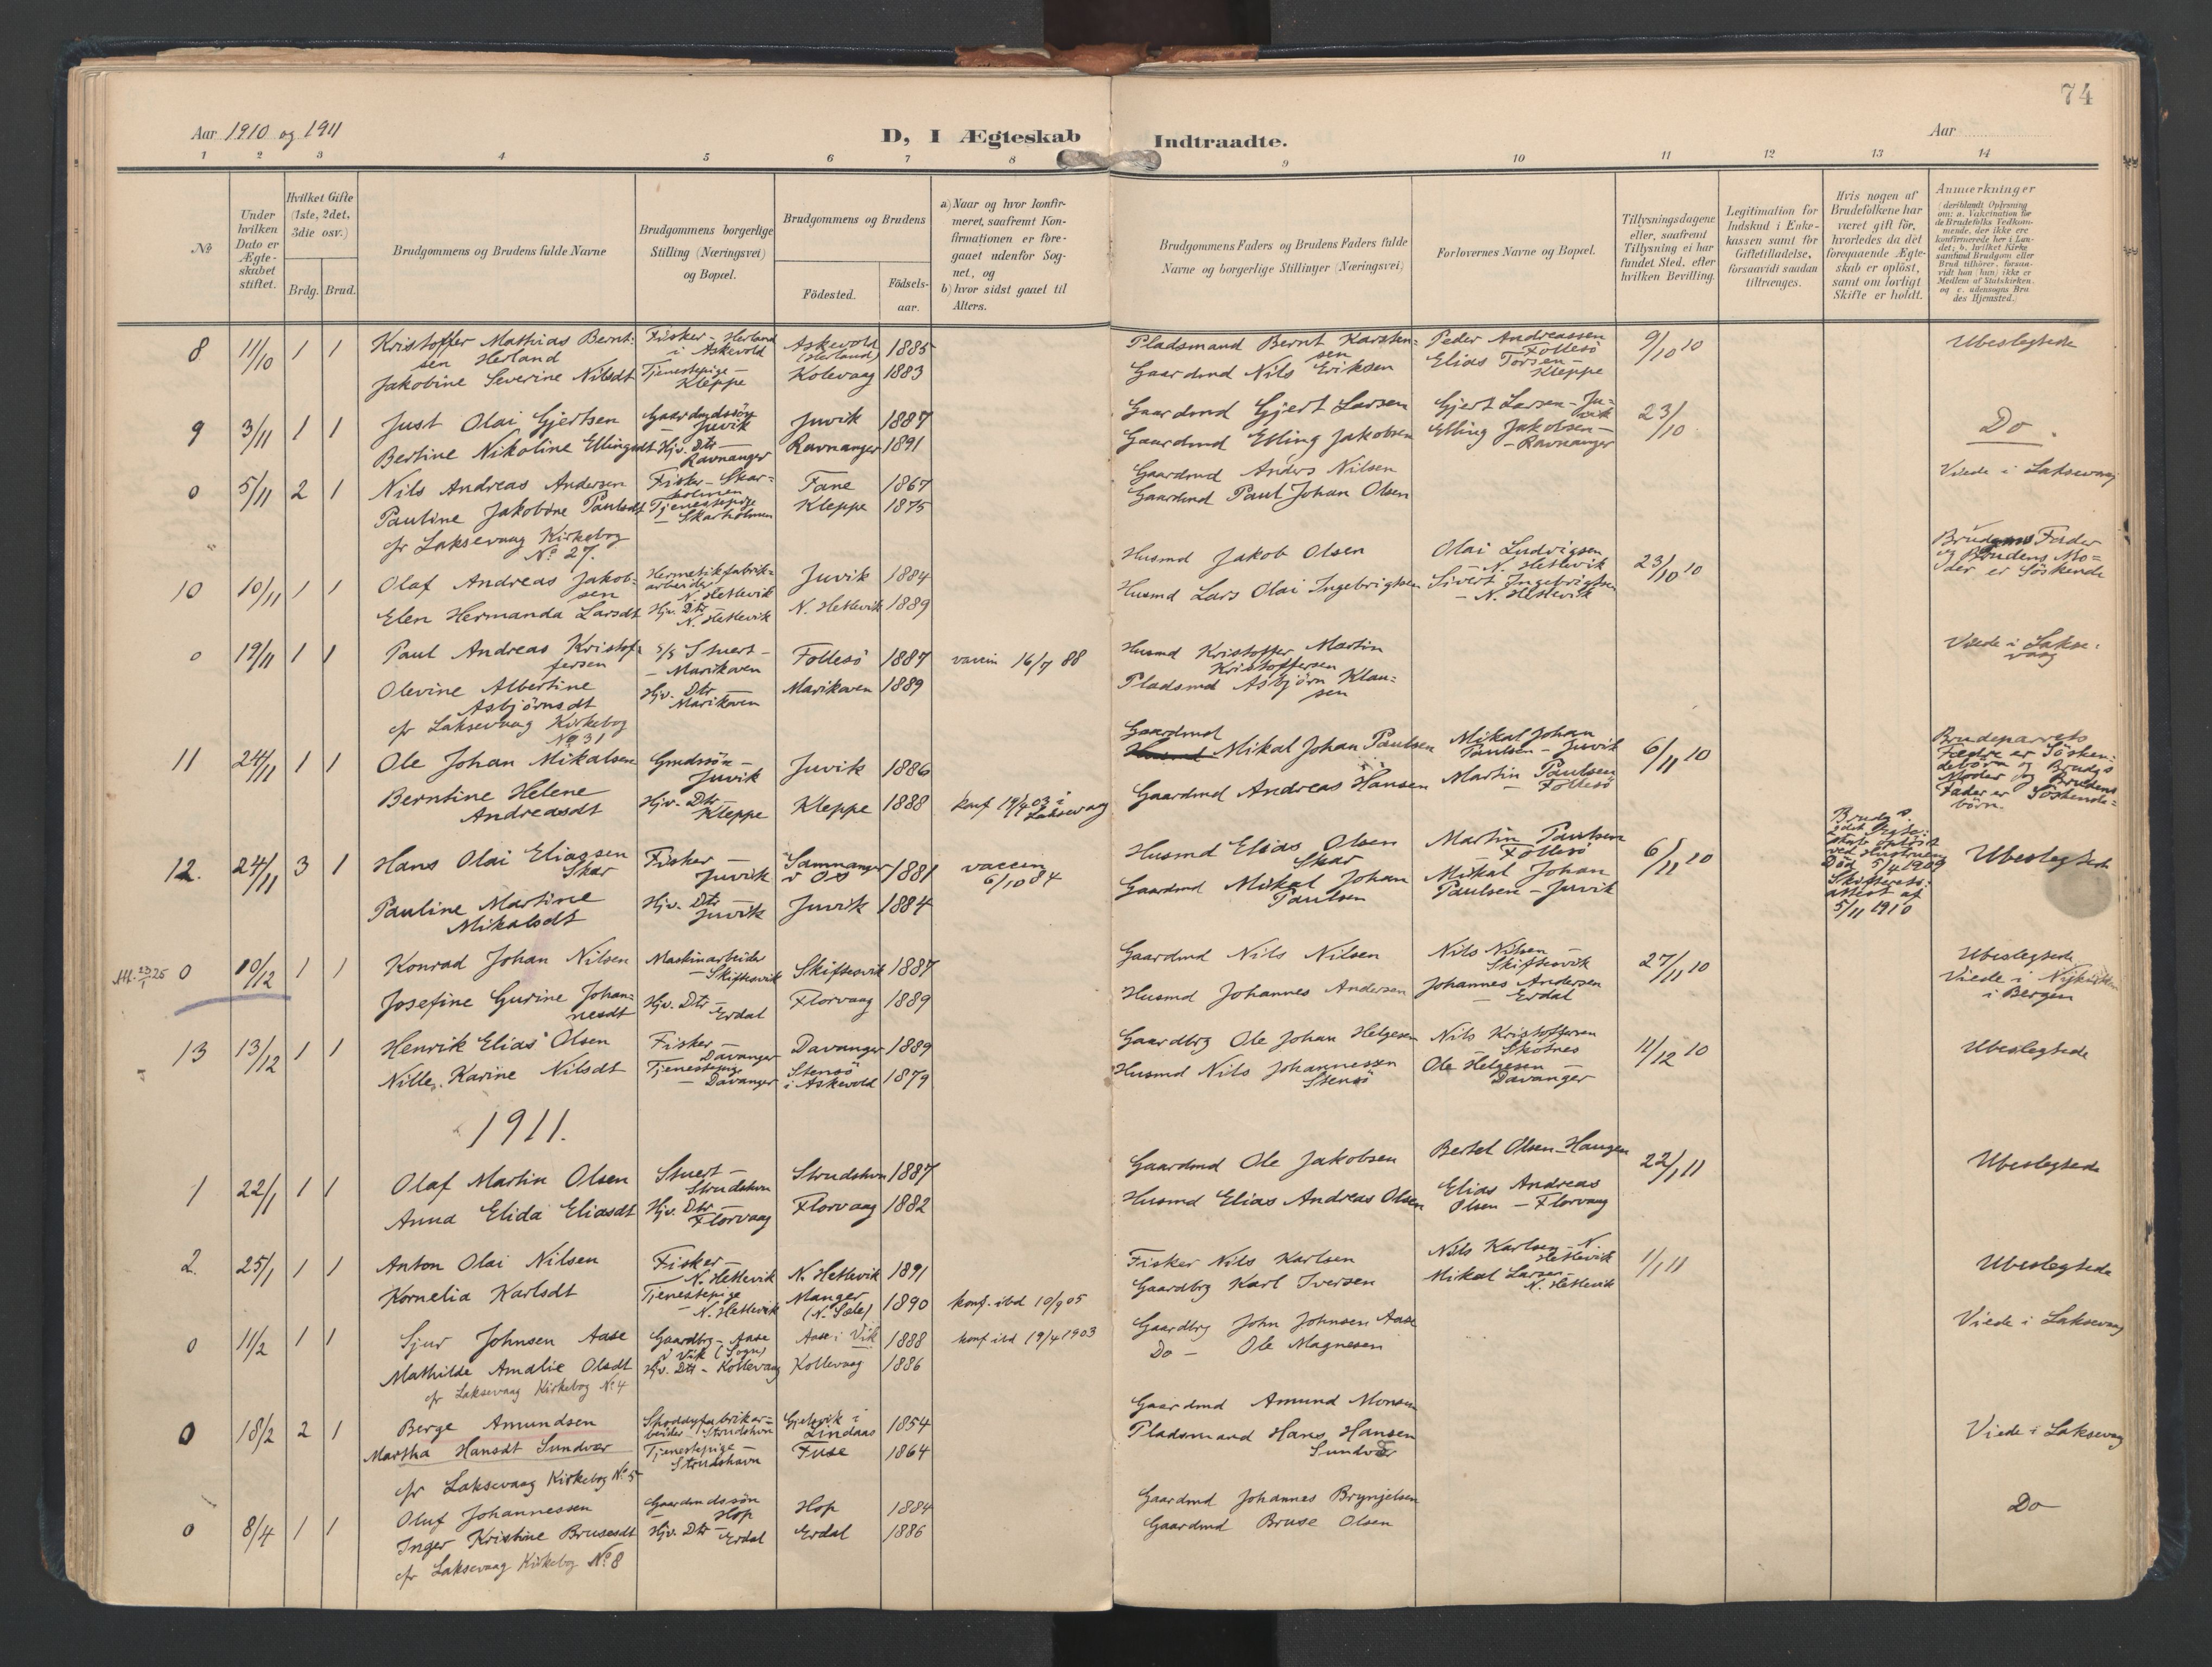 74
Aar 1910 og 1911
D, I Ægteskab Indtraadte.
Aar
1 2 3 4 5 6 7 8 9 10 11 12 13 14
№
Under hvilken Dato er Ægteskabet stiftet.
Hvilket Gifte (1ste, 2det, 3die osv.)
Brdg. Brud.
Brudgommens og Brudens fulde Navne
Brudgommens borgerlige Stilling (Næringsvei) og Bopæl.
Brudgommens og Brudens
Födested.
Födsels-aar.
a) Naar og hvor konfirmeret, saafremt Konfirmationen er foregaaet udenfor Sognet, og
b) hvor sidst gaaet til Alters.
Brudgommens Faders og Brudens Faders fulde Navne og borgerlige Stillinger (Næringsvei)
Forlovernes Navne og Bopæl.
Tillysningsdagene eller, saafremt Tillysning ei har fundet Sted, efter hvilken Bevilling.
Legitimation for Indskud i Enkekassen samt for Giftetilladelse, forsaavidt saadan tiltrænges.
Hvis nogen af Brudefolkene har været gift för, hvorledes da det foregaaende Ægteskab er oplöst, samt om lovligt Skifte er holdt.
Anmerkninger (deriblandt Oplysning om: a. Vakcination for de Brudefolks Vedkommende, der ikke ere konfirmerede her i Landet; b. hvilket Kirkesamfund Brudgom eller Brud tilhörer, forsaavidt han (hun) ikke er Medlem af Statskirken, og c. udensogns Brudes Hjemsted.)
8 11/10 1 1 Kristoffer Mathias Berntsen Herland Fisker - Herland i Askevold Askevold (Herland) 1885 Pladsmand Bernt Karstensen Peder Andreassen Follesö 9/10 10 Ubeslegtede
Jakobine Severine Nilsdt Tjenestepige - Kleppe Kolevaag 1883 Gaardmd Nils Eriksen Elias Torsen - Kleppe
9 3/11 1 1 Just Olai Gjertsen Gaardmdssön - Juvik Juvik 1887 Gaardmd Gjert Larsen Gjert Larsen - Juvik 23/10 Do
Bertine Nikoline Ellingsdt Hjv. Dtr - Ravnanger Ravnanger 1891 Gaardmd Elling Jakobsen Elling Jakobsen - Ravnanger
0 5/11 2 1 Nils Andreas Andersen Fisker - Skarholmen Fane 1867 Gaardmd Anders Nilsen Viede i Laksevaag
Pauline Jakobine Paulsdt Tjenestepige - Skarholmen Kleppe 1875 Gaardmd Paul Johan Olsen
cfr Laksevaag Kirkebog № 27.
10 10/11 1 1 Olaf Andreas Jakobsen Hermetikfabrikarbeider N. Hetlevik Juvik 1884 Husmd Jakob Olsen Olai Ludvigsen - N. Hetlevik 23/10 10 Brudgoms Fader og Brudens Moder er Söskende
Elen Hermanda Larsdt Hjv. Dtr - N. Hetlevik N. Hetlevik 1889 Husmd Lars Olai Ingebrigtsen Sivert Ingebrigtsen - N. Hetlevik
0 19/11 1 1 Paul Andreas Kristoffersen S/S Stuert - Marikoven Follesö 1887 vaccin 16/7 88 Husmd Kristoffer Martin Kristoffersen Viede i Laksevaag
Olevine Albertine Asbjörnsdt Hjv. Dtr - Marikoven Marikoven 1889 Pladsmd Asbjörn Klausen
cfr Laksevaag Kirkebog № 31
11 24/11 1 1 Ole Johan Mikalsen Gmdssön - Juvik Juvik 1886 Gaardmd Mikal Johan Paulsen Mikal Johan Paulsen - Juvik 6/11 10 Brudeparrets Fædre er Söskendebörn og Brudgs Moder og Brudens Fader er Söskendebörn.
Berntine Helene Andreasdt Hjv. Dtr - Kleppe Kleppe 1888 konf 19/4 03 i Laksevaag Gaardmd Andreas Hansen Martin Paulsen - Follesö
12. 24/11 3 1 Hans Olai Eliassen Skar Fisker - Juvik Samnanger v Os 1881 vaccin 6/10 84 Husmd Elias Olsen Skar Martin Paulsen Follesö 6/11 10 Brudg's 2det Ægteskab oplöst ved Hustruens Död 5/4 1909 Skifterets-attest af 5/11 1910 Ubeslegtede
Pauline Martine Mikalsdt Hjv. Dtr - Juvik Juvik 1884 Gaardmd Mikal Johan Paulsen Mikal Johan Paulsen - Juvik
0 10/12 1 1 Konrad Johan Nilsen Maskinarbeider - Skiftesvik Skiftesvik 1887 Gaardmd Nils Nilsen Nils Nilsen - Skiftesvik 27/11 10 Ubeslegtede Viede i Nykirken i Bergen
Josefine Gurine Johannesdt Hjv. Dtr - Erdal Florvaag 1889 Husmd Johannes Andersen Johannes Andersen - Erdal
13 13/12 1 1 Henrik Elias Olsen Fisker - Davanger Davanger 1889 Gaardbrg Ole Johan Helgesen Nils Kristoffersen Skotnes 11/12 10 Ubeslegtede
Nille Karine Nilsdt Tjenestepige - Davanger Stensö i Askevold 1879 Husmd Nils Johannessen Stensö Ole Helgesen - Davanger
1911.
1 22/1 1 1 Olaf Martin Olsen Stuert - Strudshvn Strudshvn 1887 Gaardmd Ole Jakobsen Bertel Olsen - Haugen 22/1 11 Ubeslegtede
Anna Elida Eliasdt Hjv. Dtr - Florvaag Florvaag 1882 Husmd Elias Andreas Olsen Elias Andreas Olsen - Florvaag
2. 25/1 1 1 Anton Olai Nilsen Fisker - N. Hetlevik N. Hetlevik 1891 Fisker Nils Karlsen Nils Karlsen - N. Hetlevik 1/1 11 Ubeslegtede
Kornelia Karlsdt Tjenestepige - N. Hetlevik Manger (N. Sæle) 1890 konf. ibd 10/9 05 Gaardbrg Karl Iversen Mikal Larsen - N. Hetlevik
0 11/2 1 1 Sjur Johnsen Aase Gaardbrg - Aase i Vik (Sogn) Aase i Vik 1888 konf ibd 19/4 1903 Gaardbrg John Johnsen Aase Viede i Laksevaag
Mathilde Amalie Olsdt Hjv. Dtr - Kollevaag Kollevaag 1886 Do - Ole Magnesen
cfr Laksevaag Kirkebog № 4
0 18/2 2 1 Berge Amundsen Shoddyfabrikarbeider Strudshvn Gjelsvik i Lindaas 1854 Gaardmd Amund Monsen Viede i Laksevaag
Martha Hansdt Sundvor Tjenestepige - Strudshavn Fuse 1864 Pladsmand Hans Hansen Sundvor
cfr Laksevaag Kirkebog № 5
0 8/4 1 1 Oluf Johannessen Gaardmdssön - Hop Hop 1884 Gaardmd Johannes Brynjelsen Do
Inger Kristine Brusesdt Hjv. Dtr - Erdal Erdal 1886 Gaardmd Bruse Olsen
cfr Laksevaag Kirkebog № 8